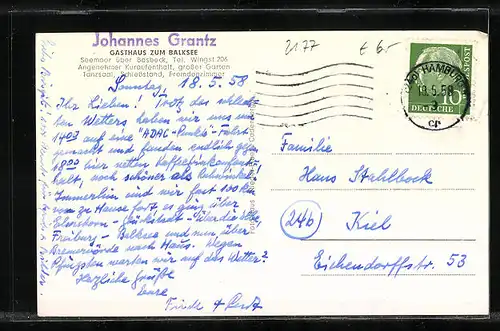 Johannes Grantz
GASTHAUS ZUM BALKSEE
Seemoor über Basbeck, Tel. Wingst 206
Angenehmer Kuraufenthalt, großer Garten
Tanzsaal, Schießstand, Fremdenzimmer
Sonntag, 18.5.58
Ihr Lieben! Trotz des schlech-
ten Wetters haben wir uns um
14 03 auf eine "ADAC- -Fahrt
gemacht und fanden endlich gegen
18 00 hier netten Kaffee
halt, noch schöner als
Immerhin sind wir fast 100 km
von zu Hause fort. es ging über
Elmshorn - Glückstadt - über die Elbe
Freiburg - Balksee und nun über
Bremervörde nach Haus. Wegen
Pfingsten warten wir auf das Wetter?
Herzliche Grüße
Eure
2177
£ 6.-
HAMBURG
18.5.58
DEUTSCHE
BUNDESPOST
10
Familie
Hans Stahlbock
(24b) Kiel
Eichendorffstr. 53